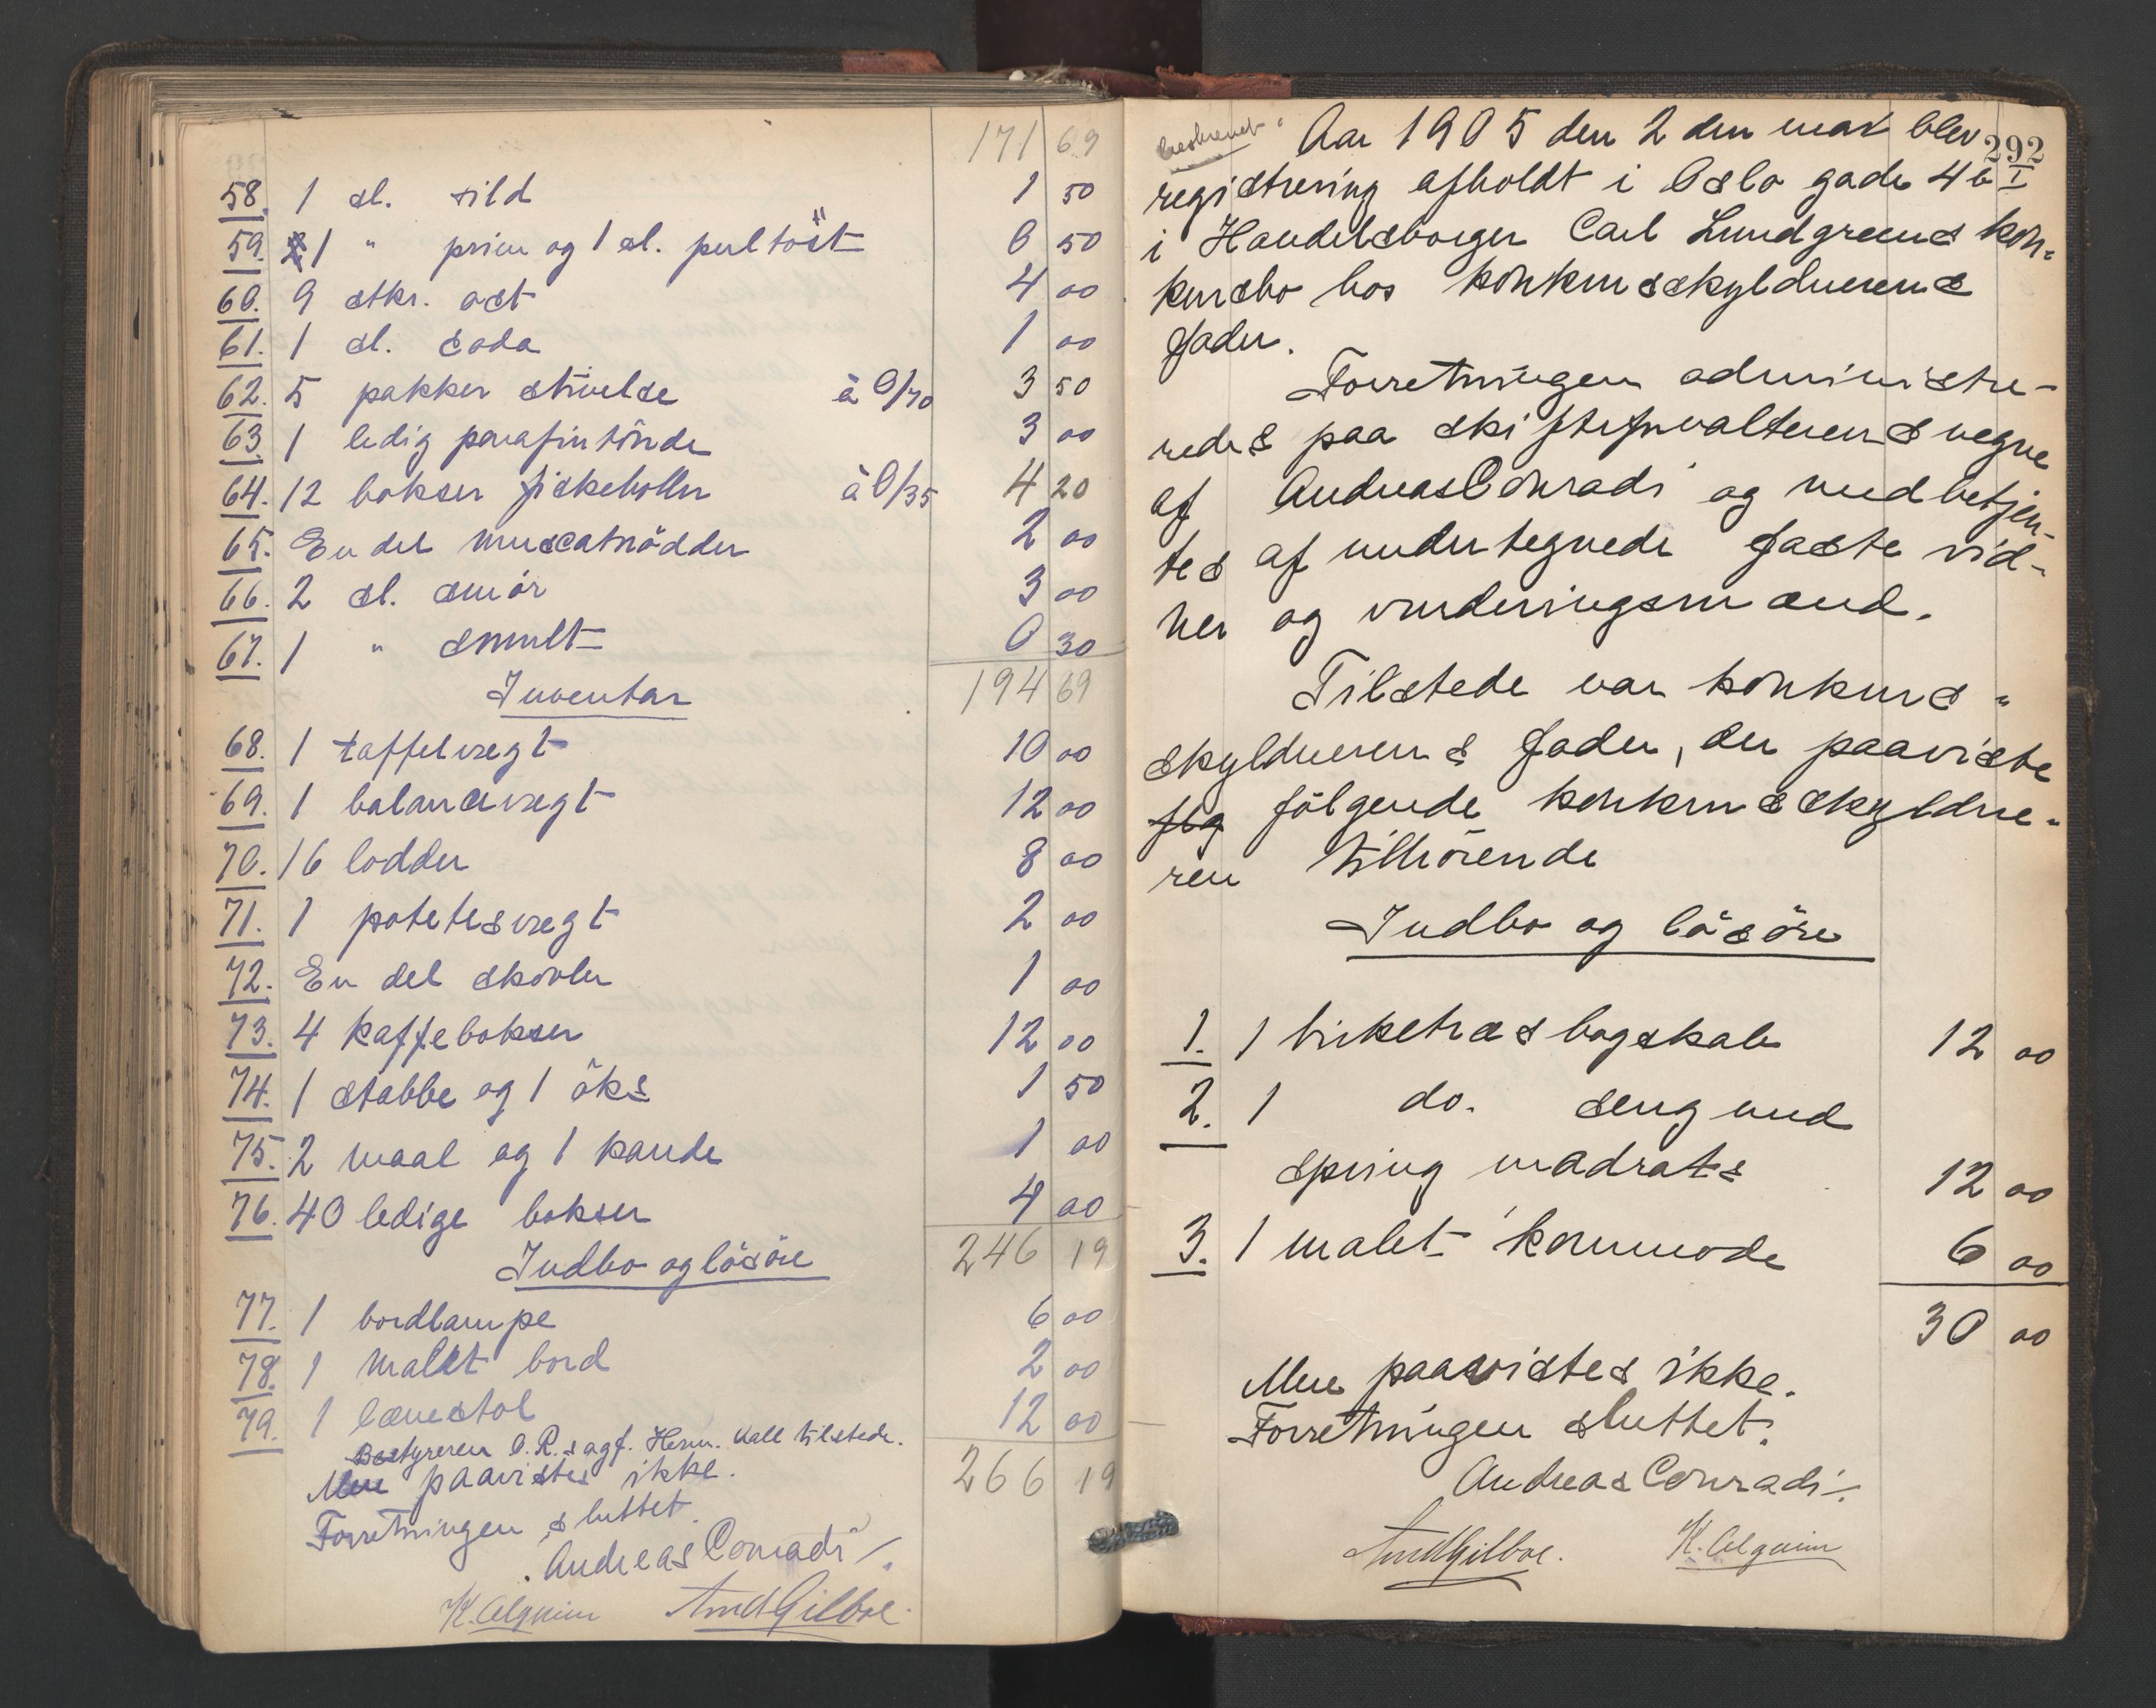 171 69
58. 1 sl. sild 1 50
59. 1 " prim og 1 sl. pultöst 0 50
60. 9 stkr. ost 4 00
61. 1 sl. soda 1 00
62. 5 pakker stivelse à 0/70 3 50
63. 1 ledig parafintönde 3 00
64. 12 bokser fiskeboller à 0/35 4 20
65. En del muscatnödder 2 00
66. 2 sl. smör 3 00
67. 1 " smult 0 30
Inventar 194 69
68. 1 taffelvegt 10 00
69. 1 balancevegt 12 00
70. 16 lodder 8 00
71. 1 potetesvegt 2 00
72. En del skovler 1 00
73. 4 kaffebokser 12 00
74. 1 stabbe og 1 öks 1 50
75. 2 maal og 1 kande 1 00
76. 40 ledige bokser 4 00
Indbo og lösöre 246 19
77. 1 bordlampe 6 00
78. 1 malet bord 2 00
79. 1 lænestol 12 00
Bestyreren O.R.sagf. Herm. Kall tilstede.
Mere paavistes ikke. 266 19
Forretningen sluttet.
Andreas Conradi
K. Algrim AmdGilboe.
beskrevet.
292
Aar 1905 den 2den mai blev
registrering afholdt i Oslo gade 4 b I
i Handelsborger Carl Lundgreens kon-
kursbo hos konkursskyldnerens
fader.
Forretningen administre-
redes paa skifteforvalterens vegne
af Andreas Conradi og medbetjen-
tes af undertegnede faste vid-
ner og vurderingsmænd.
Tilstede var konkurs-
skyldnerens fader, der paaviste
fög følgende konkursskyldne-
ren tilhörende
Indbo og lösöre
1. 1 birketræs bogskab 12 00
2. 1 do. seng med
spring madrats 12 00
3. 1 malet kommode 6 00
30 00
Mere paavistes ikke.
Forretningen sluttet.
Andreas Conradi
AmdGilboe. K. Algrim